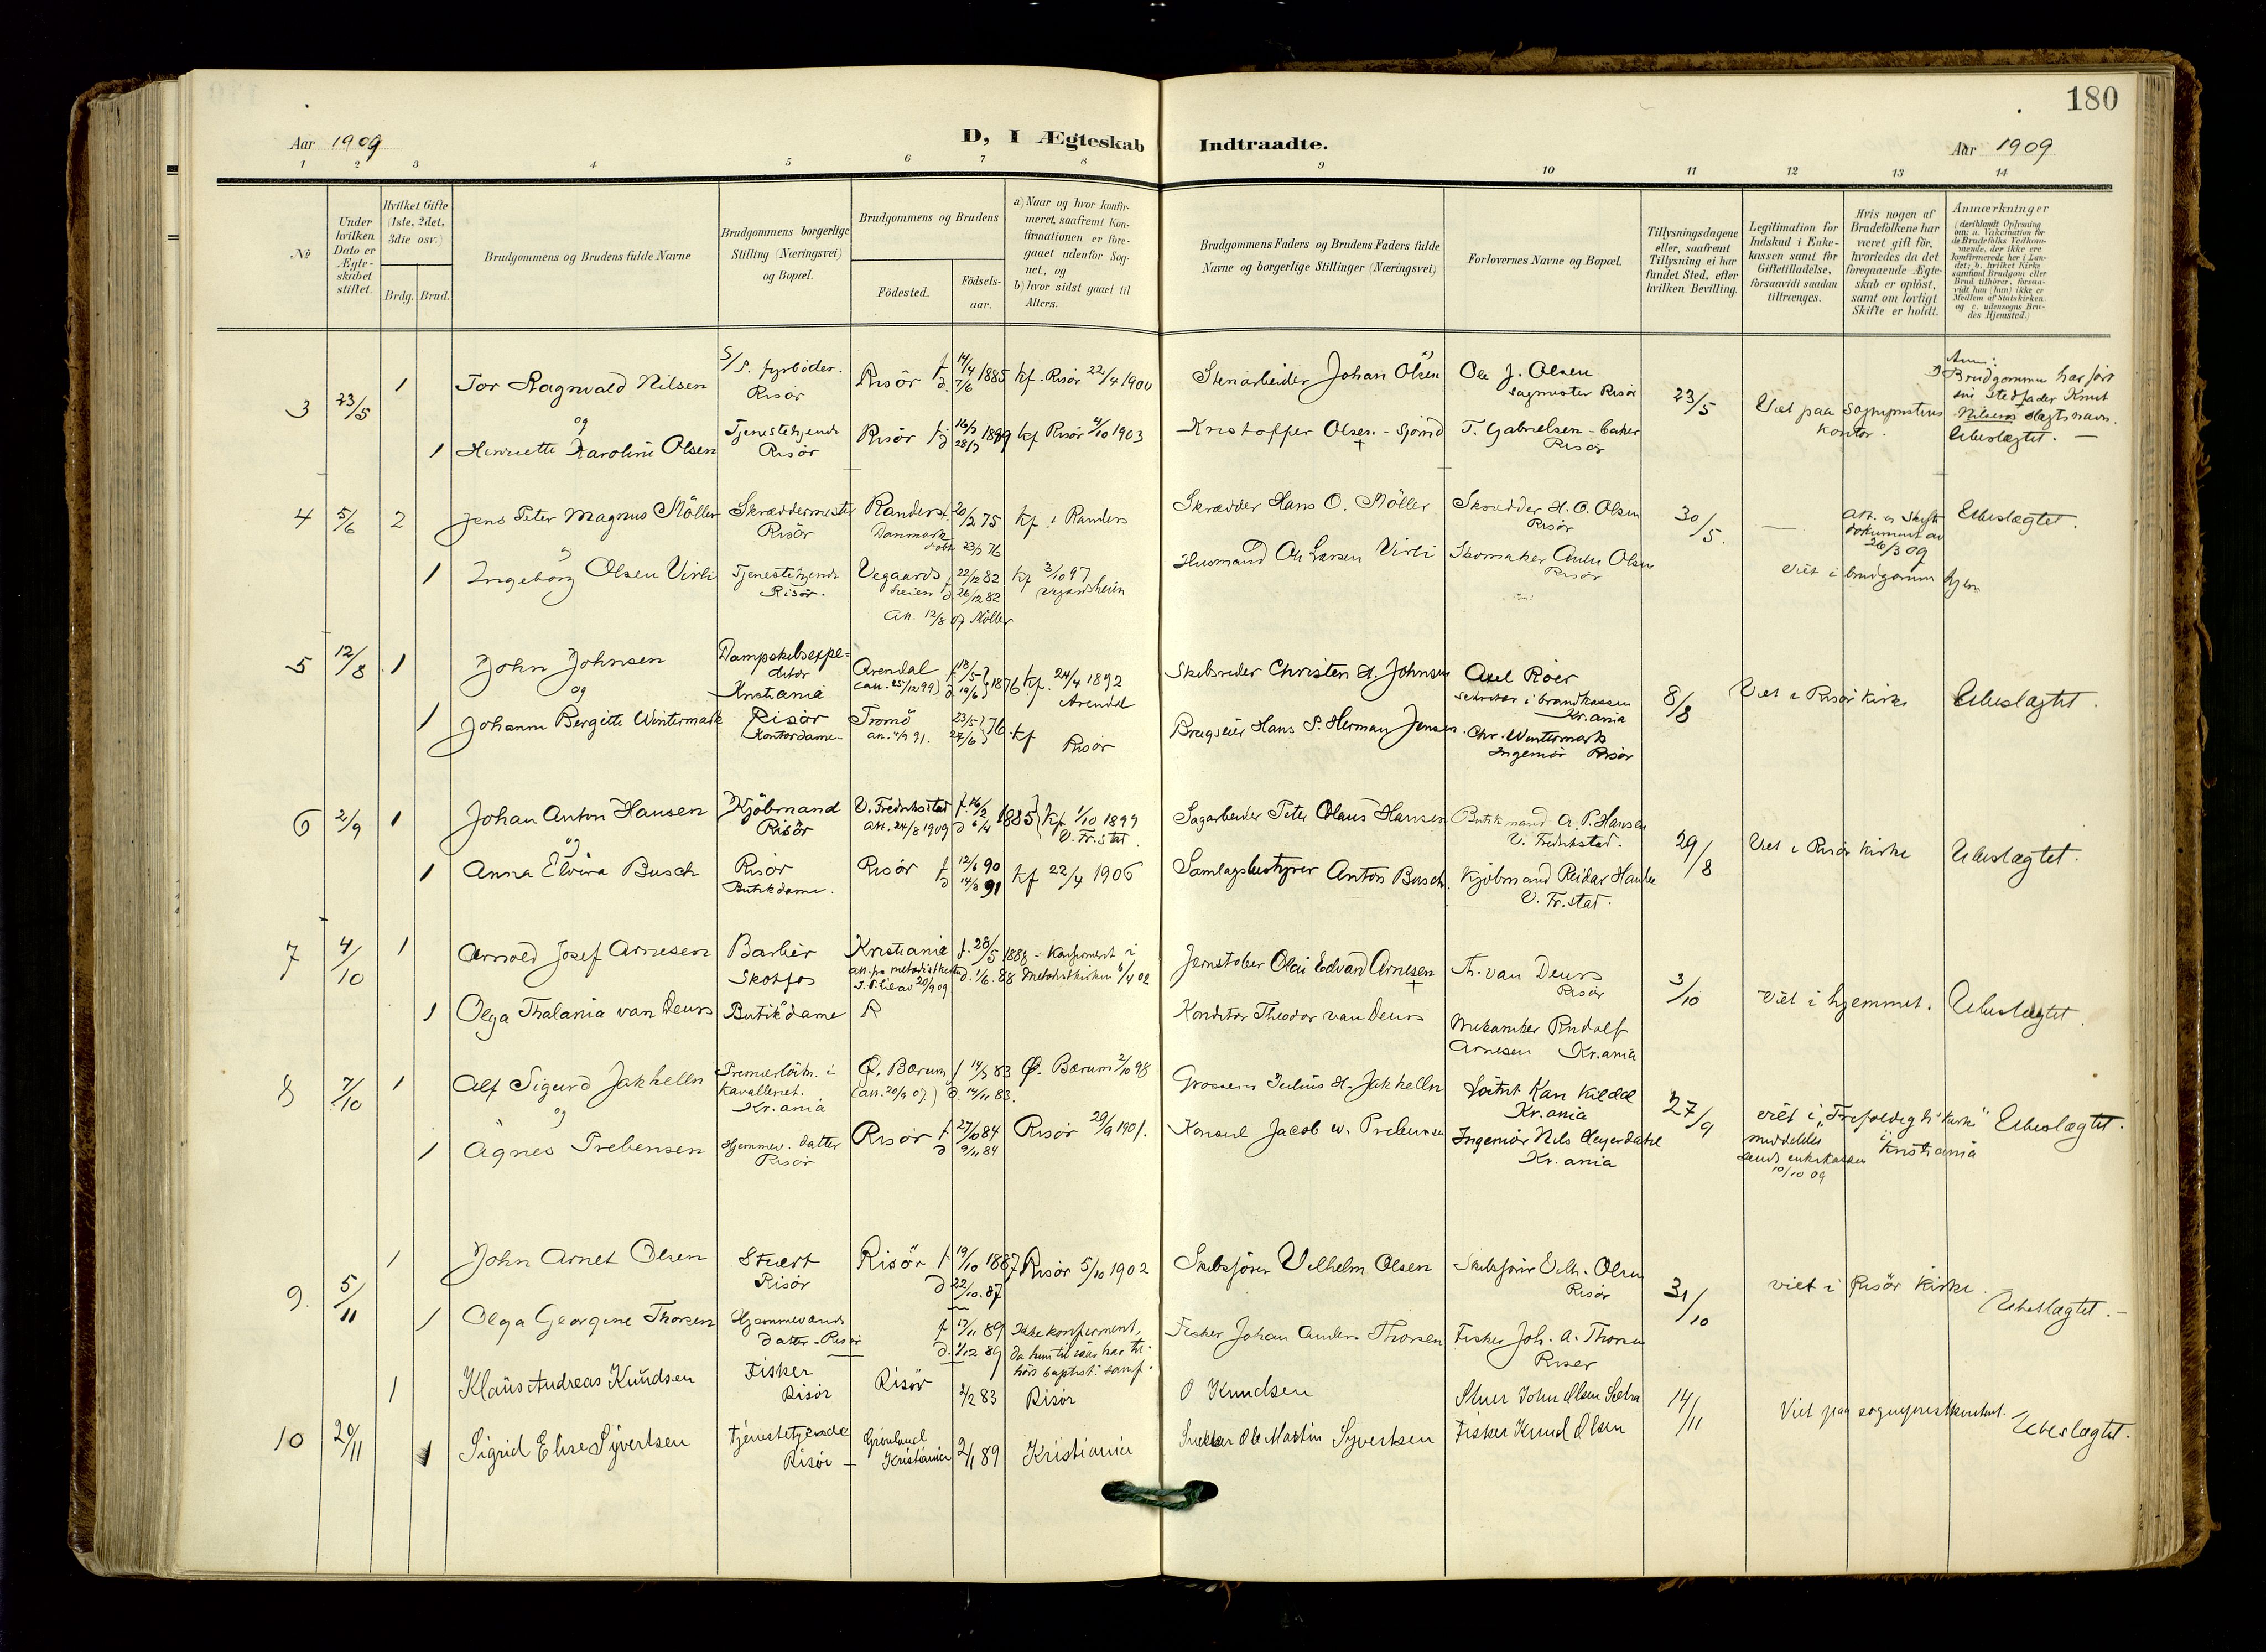 180
Aar 1909
D, I Ægteskab Indtraadte.
Aar 1909
1 2 3 4 5 6 7 8 9 10 11 12 13 14
No
Under hvilken Dato er Ægteskabet stiftet.
Hvilket Gifte (1ste, 2det, 3die osv.)
Brdg. Brud.
Brudgommens og Brudens fulde Navne
Brudgommens borgerlige Stilling (Næringsvei) og Bopæl.
Brudgommens og Brudens
Födested.
Födsels-aar.
a) Naar og hvor konfirmeret, saafremt Konfirmationen er foregaaet udenfor Sognet, og
b) hvor sidst gaaet til Alters.
Brudgommens Faders og Brudens Faders fulde Navne og borgerlige Stillinger (Næringsvei)
Forlovernes Navne og Bopæl.
Tillysningsdagene eller, saafremt Tillysning ei har fundet Sted, efter hvilken Bevilling.
Legitimation for Indskud i Enkekassen samt for Giftetilladelse, forsaavidt saadan tiltrænges.
Hvis nogen af Brudefolkene har været gift för, hvorledes da det foregaaende Ægteskab er oplöst, samt om lovligt Skifte er holdt.
Anmærkninger (deriblandt Oplysning om: a. Vakcination for de Brudefolks Vedkommende, der ikke ere konfirmerede her i Landet; b. hvilket Kirkesamfund Brudgom eller Brud tilhörer, forsaavidt han (hun) ikke er Medlem af Statskirken. og c. udensogns Brudes Hjemsted.)
3 23/5 1 Tor Ragnvald Nilsen S/S. fyrböder. Risör Risör f. 14/4 1885 d. 7/6 kf. Risör 22/4 1900 Stenarbeider Johan Olsen Ole J. Olsen sagmester Risör 23/5 Viet paa sogneprestens kontor. Anm: Brudgommen har fört sin stedfader Knut Nilsens slægtsnavn. Ubeslægtet. —
og
1 Henriette Karoline Olsen Tjenestepige Risör Risör kf Risör 1903 Kristoffer Olsen - Sjömd † T. Gabrielsen - baker Risör
4 5/6 2 Jens Peter Magnus Möller Skræddermester Risör Randers Danmark f. 20/2 75 döbt 23/7 76 kf. i Randers Skrædder Hans O. Möller Skrædder H. O. Olsen Risör 30/5. — att. er Skifte dokument av 26/3 09 Ubeslægtet.
og
1 Ingeborg Olsen Virli Tjenestepige Risör. Vegaardsheien f. 22/12 82 d. 26/12 82 kf 3/10 97 Vegardsheien Husmand Ole Larsen Virli Skomaker Olsen Risör Viet i brudgommens hjem
att. 12/8 07 Möller
5 12/8 1 John Johnsen Dampskibsexpeditör Kristiania Arendal (att. 25/12 99) f. 13/5 d. 19/6 1876 kf. 24/4 1892 Arendal Skibsreder Christen H. Johnsen Axel Roer sekretær i brandkassen Kr.ania 8/8 Viet i Risör kirke Ubeslægtet.
og
1 Johanne Bergitte Wintermark Risör Kontordame - Tromö 23/5 27/6 76. kf Risör Brugseier Hans P. Herman Jensen. Chr. Wintermark Ingeniör Risör
6 2/9 1 Johan Anton Hansen Kjöbmand Risör V. Fredrikstad att. 24/8 1909 f. 16/2 d 6/4 1885 kf. 1/10 1899 V. Fr.stad. Sagarbeider Peter Olaus Hansen Butikmand A. P. Hansen V. Fredrikstad. 29/8 Viet i Risör kirke Ubeslægtet.
og
1 Anna Elvira Busch Risör Butikdame. Risör f 12/6 90 d 14/8 91 kf 22/4 1906 Samlagsbestyrer Anton Busch. Kjöbmand Reidar V. Fr.stad.
7 4/10 1 Arnold Josef Arnesen Barber Skotfos Kristiania att. fra metodistkirken 20/9 09 f. 28/5 1888 d. 1/6. 88 - Konfirmert i Metodistkirken 6/4 02 Jernstöber Olai Edvard Arnesen † Th. van Deurs Risör 3/10 Viet i hjemmet. Ubeslægtet.
1 Olga Thalania van Deurs Butikdame R Konditor Theodor van Deurs Mekaniker Rudolf Arnesen Kr.ania
8 7/10 1 Alf Sigurd Jakhelln Premierlöitn. i kavalleriet. Kr.ania Ö. Bærum (att. 20/9 07.) f 14/3 83 d. 14/11 83. Ö. Bærum 2/10 98 Grosserer Julius H. Jakhelln Löitnt Kildal Kr.ania 27/9 viet i "Trefoldigh. kirke" i Kristiania Ubeslægtet.
meddelelse sendt enkekassen 10/10 09
og
1 Agnes Prebensen Hjemmev. datter Risör Risör f. 27/10 84 d 9/11 84 Risör 29/9 1901. Konsul Jacob W. Prebensen Ingeniör Nils Meyerdahl Kr.ania
9. 5/11 1 John Arnet Olsen Stuert Risör Risör f 19/10 1887 d 22/10. 87 Risör 5/10 1902 Skibsförer Vilhelm Olsen Skibsförer Vilh. Olsen Risör 31/10 viet i Risör kirke. Ubeslægtet. -
1 Olga Georgine Thorsen Hjemmeværende datter - Risör f 17/11 89 d. 1/12 89 Ikke konfirmert, da hun til iaar har tilhört baptist. samf. Fisker Johan Anders Thorsen Fisker Joh. A. Thorsen Risör
10 20/11 1 Klaus Andreas Knudsen Fisker Risör Risör 2/2 83 Risör O Knudsen John Olsen 14/11 Viet paa sogneprestkontoret. Ubeslægtet.
1 Sigrid Elise Syvertsen tjenestepige Risör - Grönland Kristiania 2/1 89 Kristiania Snekker Ole Martin Syvertsen Fisker Knud Olsen